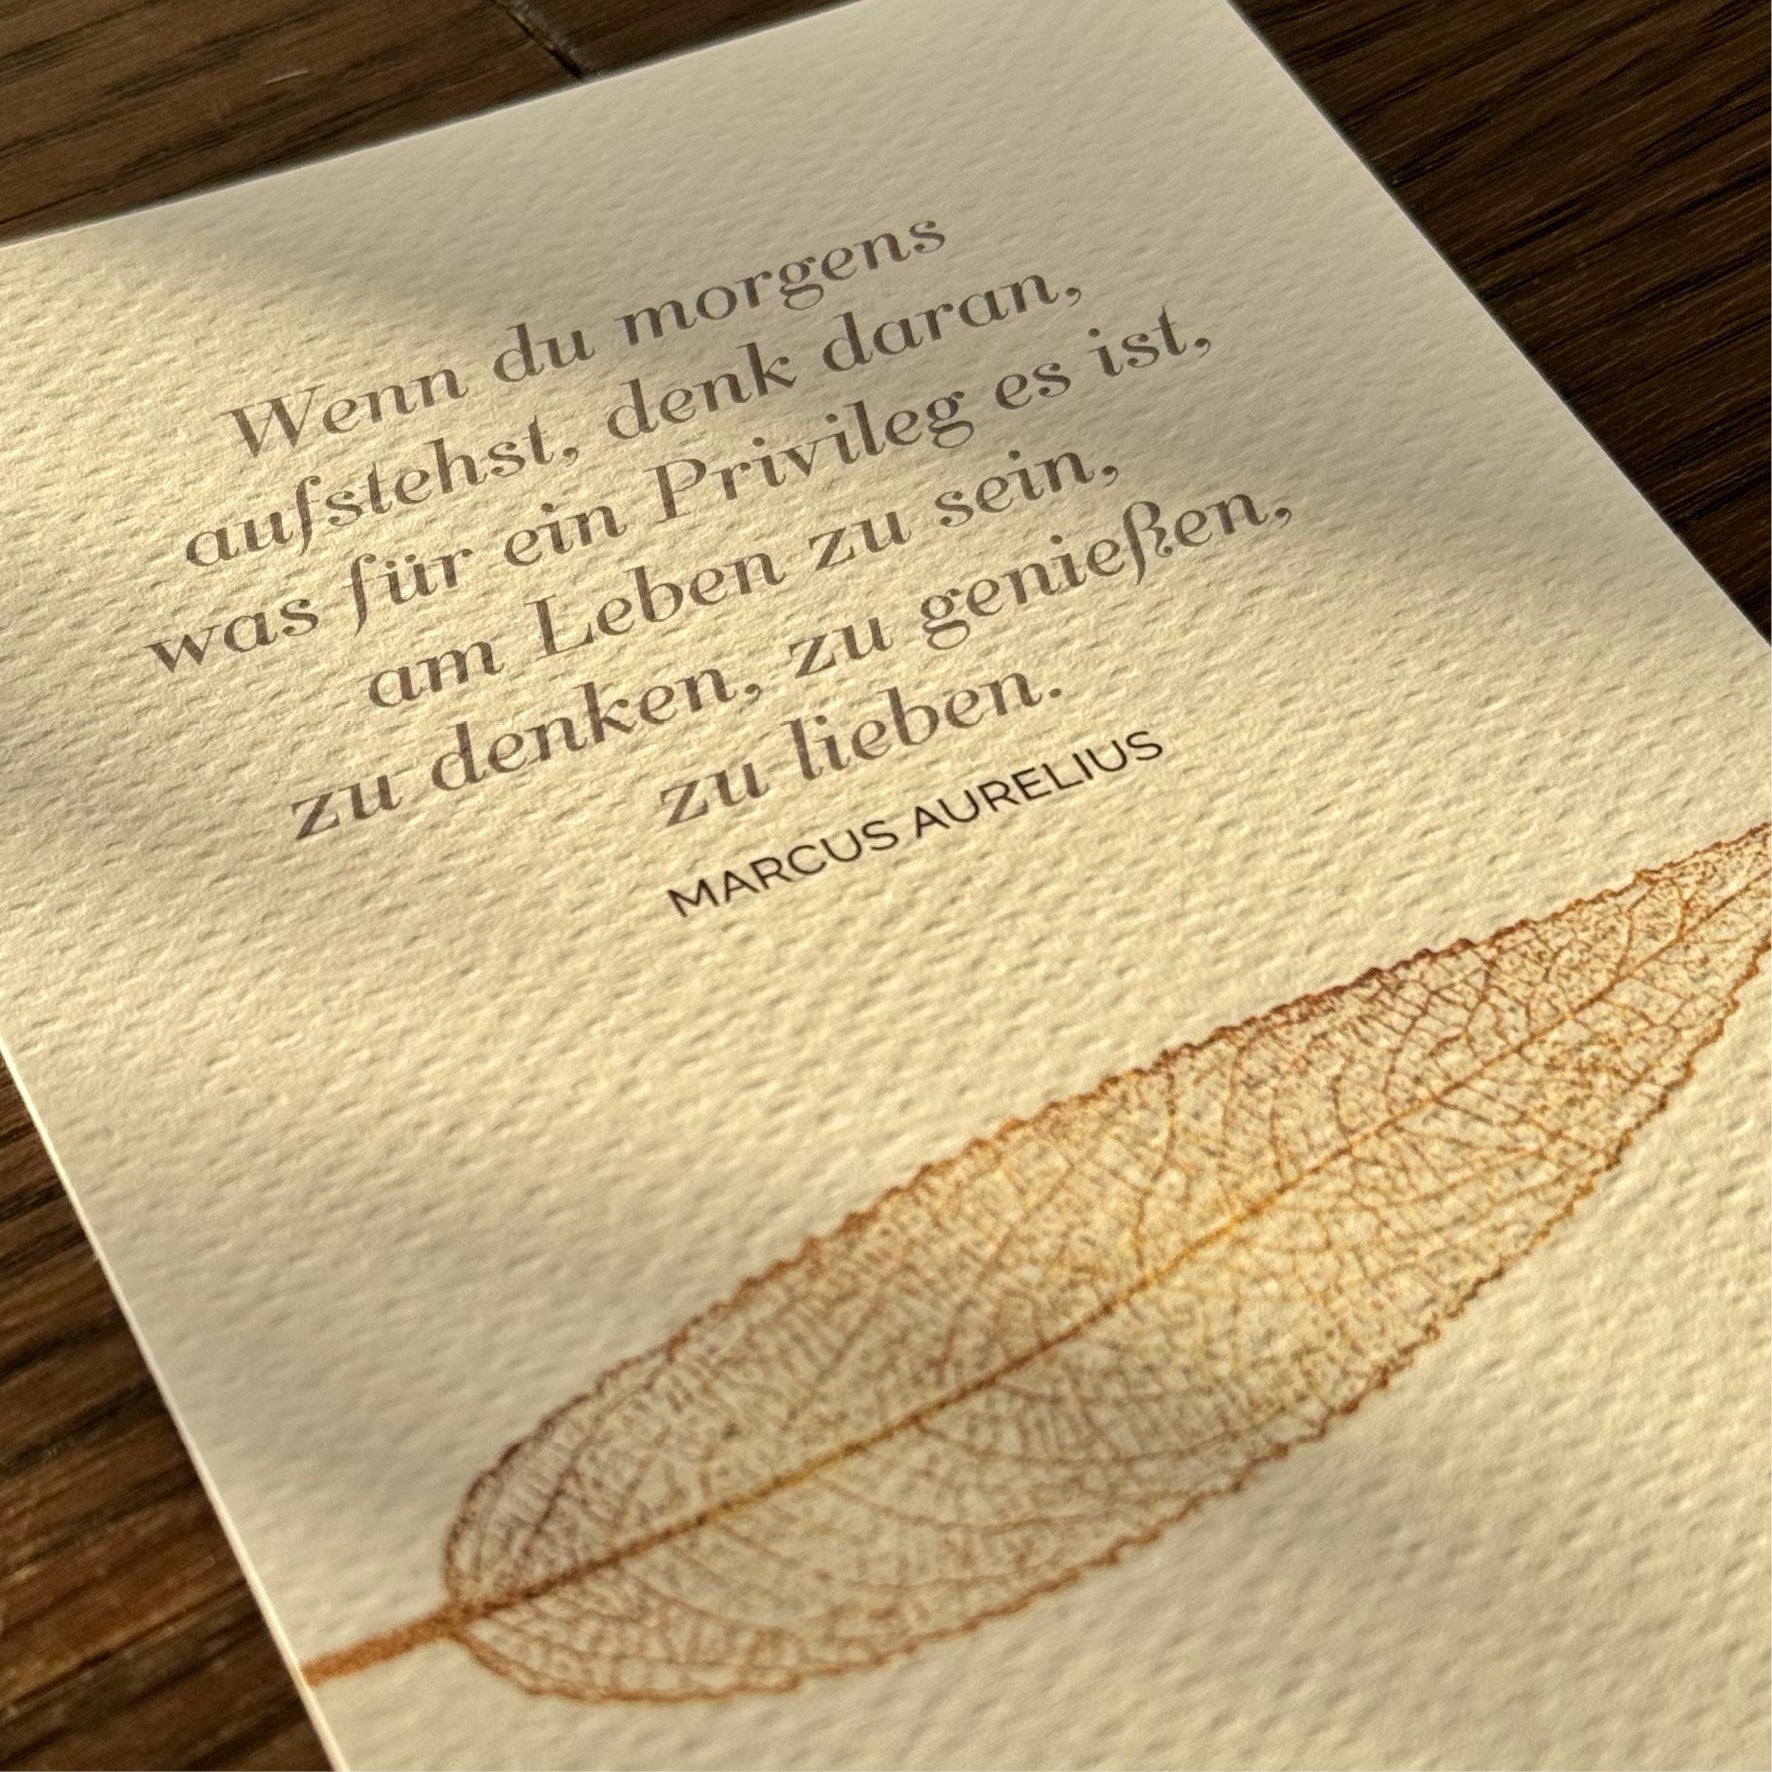 Wenn du morgens
aufstehst, denk daran,
was für ein Privileg es ist,
am Leben zu sein,
zu denken, zu genießen,
zu lieben.
MARCUS AURELIUS